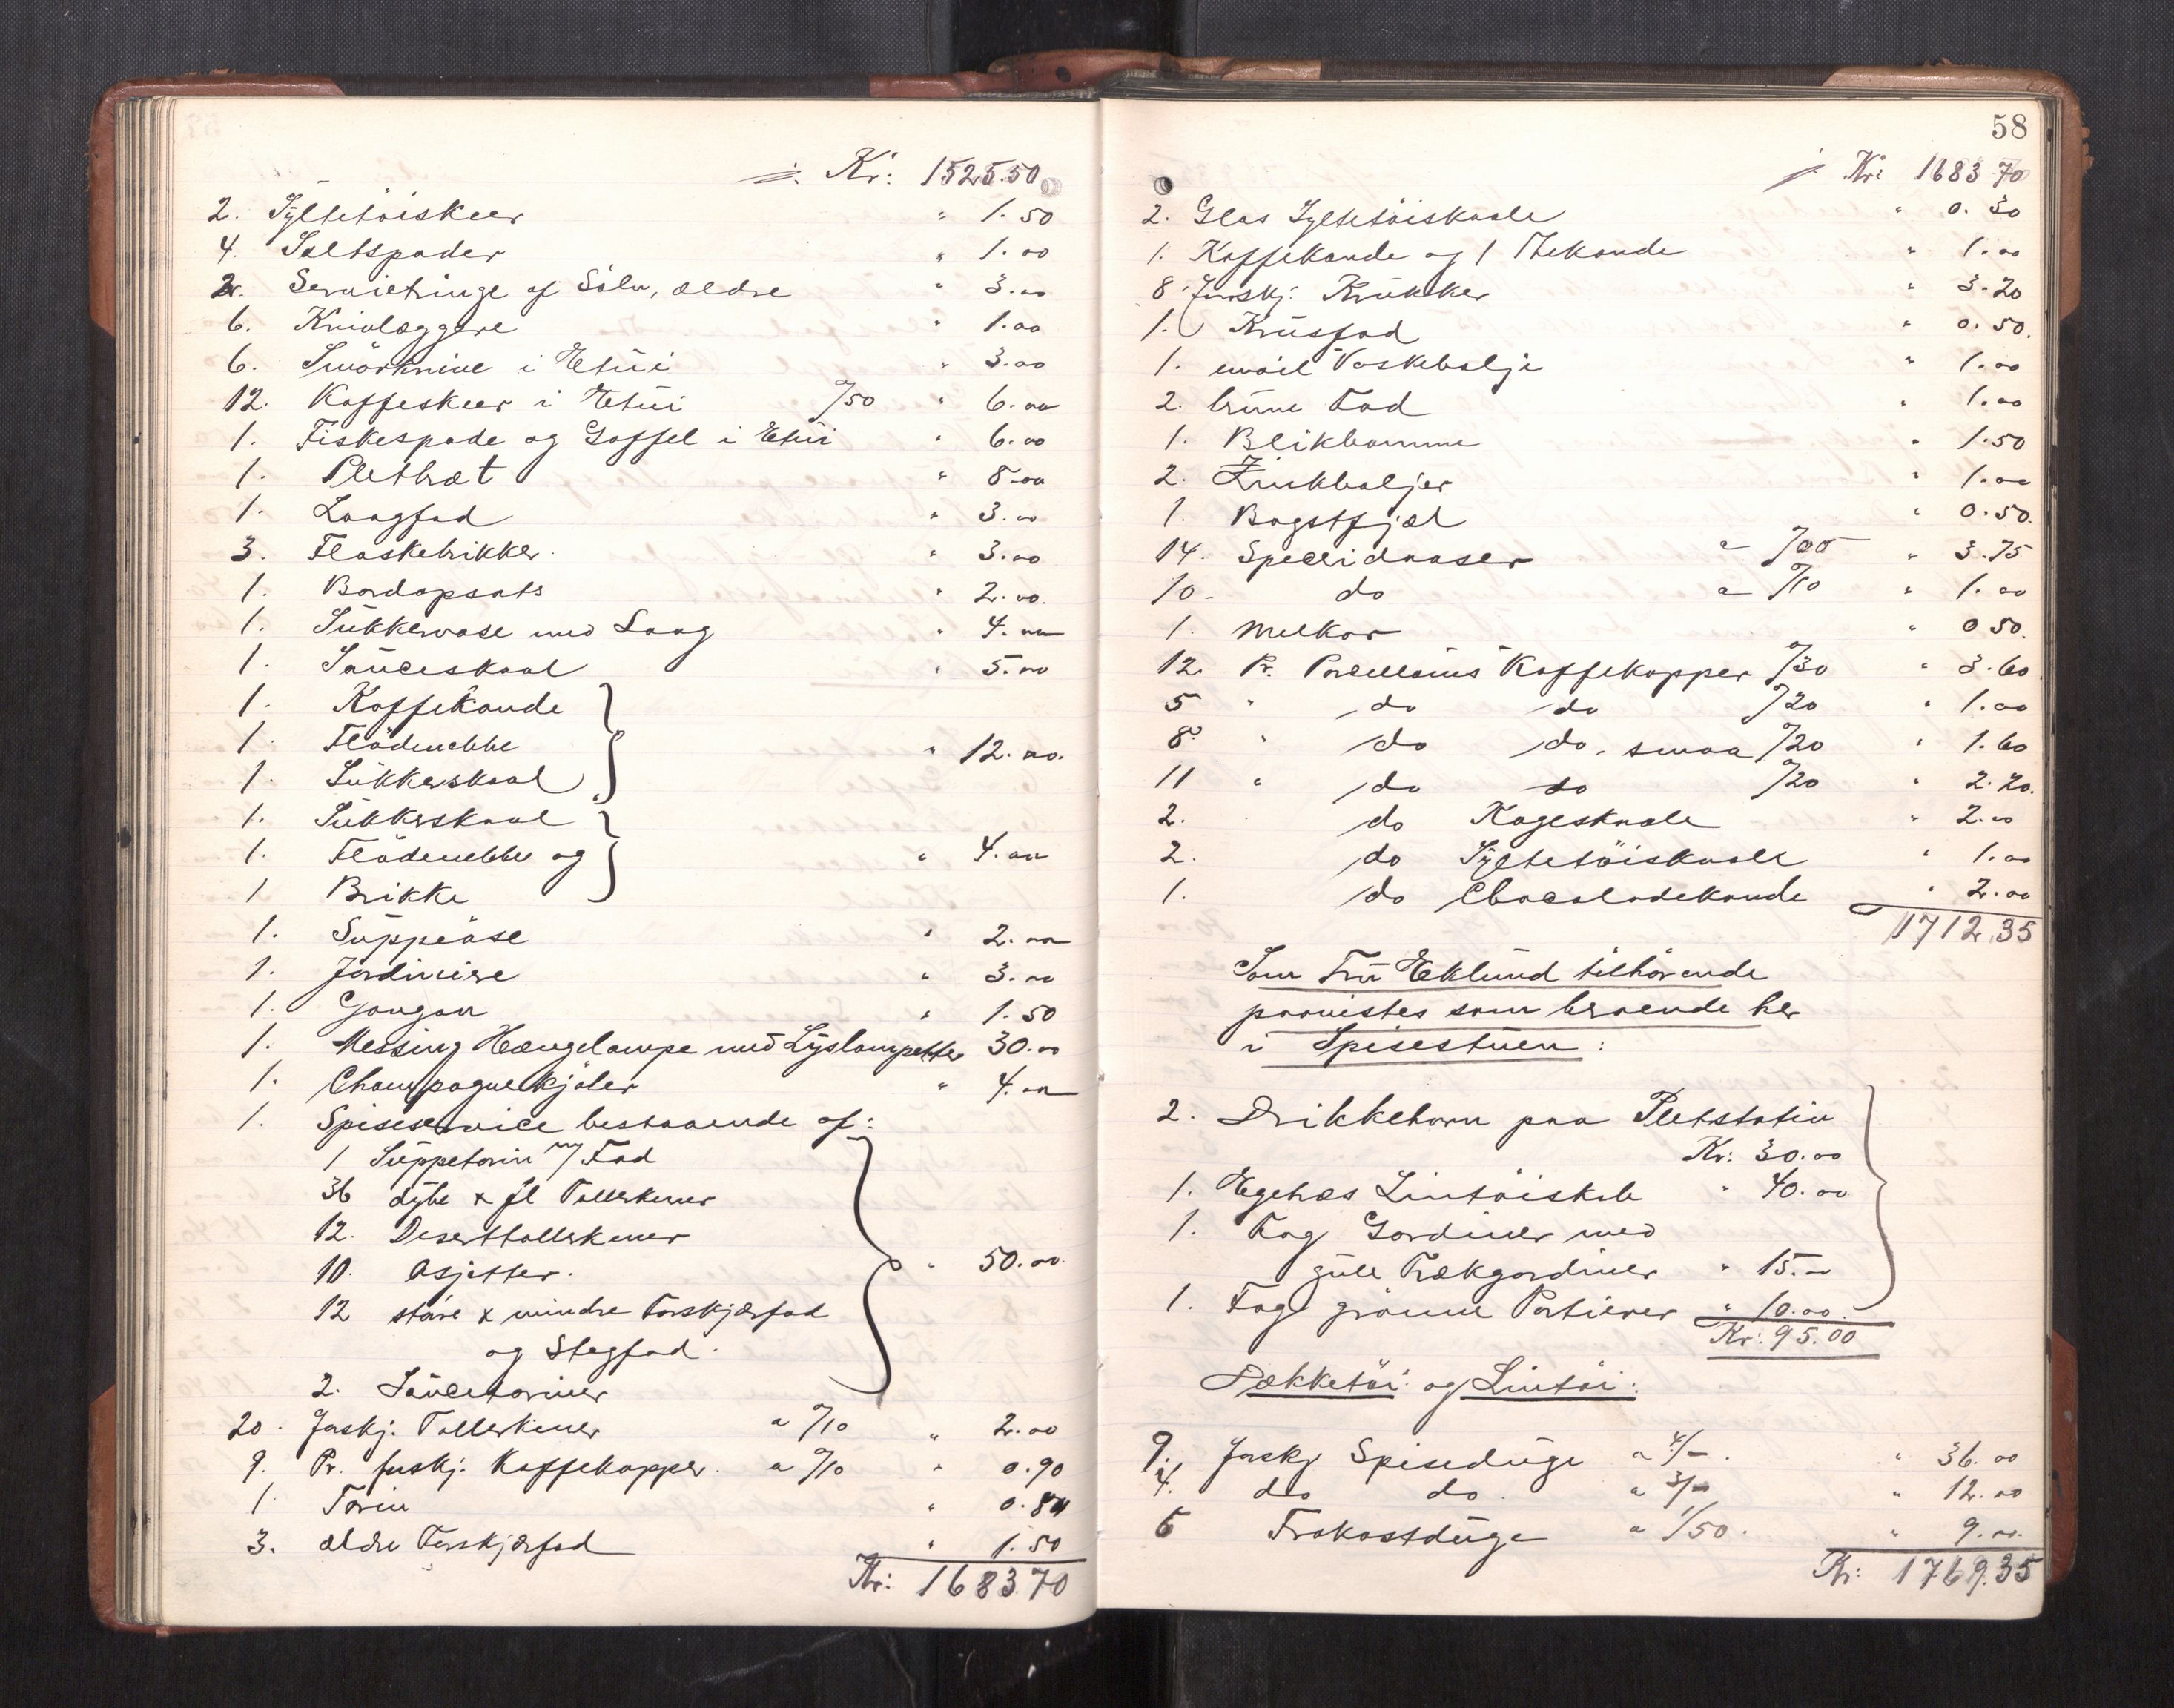 Kr: 1525.50
2. Syltetöiskeer " 1.50
4. Saltspader " 1.00
2. Servietringe af Sölv, ældre " 3.00
6. Knivlæggere " 1.00
6. Smörknive i Etüi " 3.00
12. Kaffeskeer i Etüi 0/50 " 6.00
1. Fiskespade og Gaffel i Etüi " 6.00
1. Pletbræt " 8.00
1. Laagfad " 3.00
3. Flaskebrikker. " 3.00
1. Bordopsats " 2.00.
1. Sükkervase med Laag " 4.00
1. Saüceskaal " 5.00
1. Kaffekande
1. Flödenebbe " 12.00.
1. Sükkerskaal
1. Sükkerskaal
1. Flödenebbe og " 4.00
1 Brikke
1. Süppeöse " 2.00
1. Jardiniere " 3.00
1. Gongon " 1.50
1. Messing Hængelampe med Lyslampetter 30.00
1. Champagnekjöler " 4.00
1. Spiseservice bestaaende af:
1 Süppeterin m/ Fad
36 dybe & fl Tallerkener
12. Deserttallerkener
10. Asjetter. " 50.00.
12 störe & mindre Forskjærfad
og Stegfad.
2. Saüceteriner
20. forskj. Tallerkener a 0/10 " 2.00
9. Pr. forskj. Kaffekopper. a 0/10 " 0.90
1. Terin " 0.80
3. ældre Forskjærfad " 1.50
Kr: 1683.70
58
Kr: 1683.70
2. Glas Syltetöiskaale " 0.30
1. Kaffekande og 1 Thekande " 1.00
8 forskj. Krükker " 3.20
1. Krüsfad " 0.50.
1. emoil Vaskebalje " 1.00
2. brüne Fad " 1.00
1. Blikkamme " 1.50
2. Zinkbaljer " 1.00
1. Bagstfjæl " 0.50.
14. Specridaaser " 3.75
10. do a 0/10 " 1.00
1. Melkar " 0.50.
12. Pr. Porcellains Kaffekopper 0/30 " 3.60
5 " do do 0/20 " 1.00
8 " do do. smaa 0/20 " 1.60
11 " do do 0/20 " 2.20.
2. do Kageskaale " 2.00
2. do Syltetöiskaale " 1.00
1. do Chocoladekande " 2.00
1712.35
Som Frü Eklünd tilhörende
paavistes som beroende her
i Spisestüen:
2. Drikkehorn paa Pletstativ
Kr: 30.00
1. Egetræs Lintöiskab " 40.00
1. Fag Gardiner med
güle Trækgardiner " 15.00
1. Fag grönne Portierer " 10.00.
Kr: 95.00
Dækketöi og Lintöi:
9. forskj Spisedüge a 4/- . " 36.00
4. do do. a 3/- " 12.00
6 Frokostdüge a 1/50. " 9.00.
Kr: 1769.35